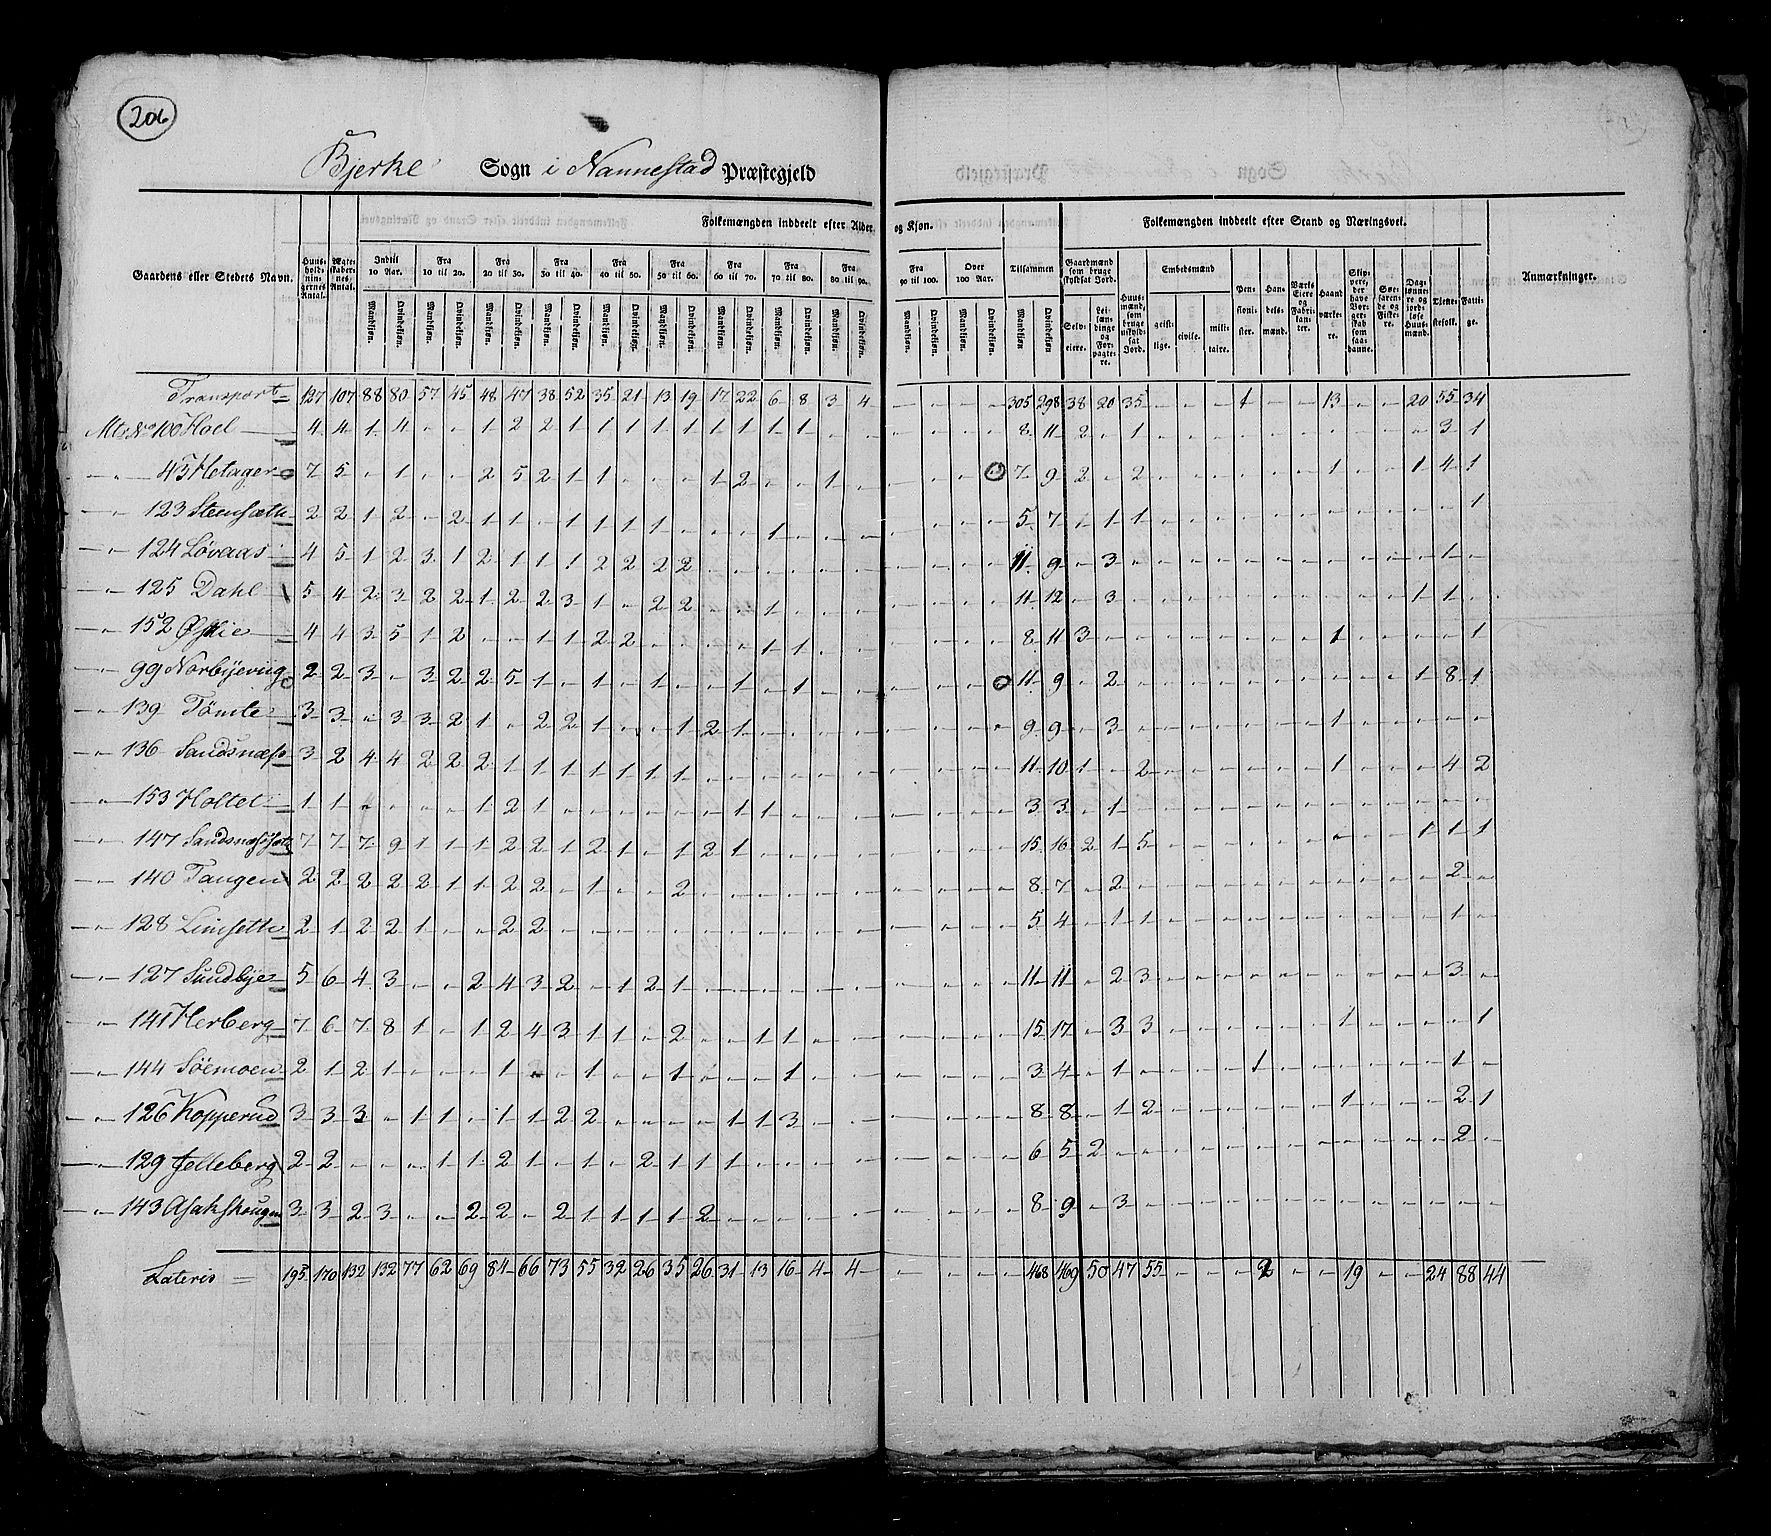 206
Bjerke Sogn i Nannestad Præstegjeld
Gaardens eller Stedets Navn. Huusholdningernes Antal. Ægteskabernes Antal. Folkemængden inddeelt efter Alder og Kjøn. Tilsammen Folkemængden inddeelt efter Stand og Næringsvei. Anmærkninger.
Indtil 10 Aar. Fra 10 til 20. Fra 20 til 30. Fra 30 til 40. Fra 40 til 50. Fra 50 til 60. Fra 60 til 70. Fra 70 til 80. Fra 80 til 90. Fra 90 til 100. Over 100 Aar.
Mandkjøn. Qvindekjøn.
Gaardmænd som bruge skyldsat Jord. Selveiere. Leilændinge og Forpagtere. Huusmænd, som bruge uskyldsat Jord. Embedsmænd geistlige. civile. militaire. Pensionister. Handelsmænd. Værks Eiere og Fabrikanter. Haandværkere. Skippere, der have Borgerskab som saadanne. Søefarende og Fiskere. Daglønnere og jordløse Huusmænd. Tjenestefolk. Fattige.
Transport 127 107 88 80 57 45 48 47 38 52 35 21 13 19 17 22 6 8 3 4 - - - - 305 298 38 20 35 - - - 1 - - 13 - - 20 55 34
Mtr No 100 Hoel 4 4 1 4 - - 1 2 2 1 1 1 1 1 1 1 1 1 - - - - - - 8 11 2 - 1 - - - - - - - - - - 3 1
45 Hetager 7 5 - 1 - - 2 5 2 1 1 - - - 1 2 - - 1 - - - - - 7 9 2 - 2 - - - - - - 1 - - 1 4 1
123 Steensæth 2 2 1 2 - 2 1 1 - 1 1 1 1 - - - 1 - - - - - - - 5 7 - 1 1 - - - - - - - - - - - 1
124 Løvaas 4 5 1 2 3 1 2 1 1 1 2 2 2 2 - - - - - - - - - - 11 9 - 3 - - - - - - - - - - - 1 -
125 Dahl 5 4 2 3 2 2 1 2 2 3 1 - 2 2 - - 1 - - - - - - - 11 12 - 3 - - - - - - - - - - 1 1 -
152 4 4 3 5 1 2 - - 1 1 2 2 - - - - 1 1 - - - - - - 8 11 3 - - - - - - - - 1 - - - - 1
99 Norbyevrig 2 2 3 - 3 2 2 5 1 - 1 - 1 - - 1 - 1 - - - - - - 11 9 - 2 - - - - - - - - - - 1 8 1
139 Tömte 3 3 - 3 3 2 1 - 2 2 1 - - 1 2 1 - - - - - - - - 9 9 - 3 - - - - - - - 1 - - - - -
136 Sandsnæss 3 2 4 4 2 2 2 1 1 1 1 1 1 1 - - - - - - - - - - 11 10 1 - 2 - - - - - - 1 - - - 4 2
153 Holtet 1 1 - - - - 1 2 1 - - - - - - 1 1 - - - - - - - 3 3 - 1 - - - - - - - - - - - - -
147 7 7 7 9 1 1 1 2 2 1 2 1 - 1 2 1 - - - - - - - - 15 16 2 1 5 - - - - - - - - - 1 1 1
140 Tangen 2 2 2 2 2 1 1 2 2 - 1 - - 2 - - - - - - - - - - 8 7 - 2 - - - - - - - - - - - 2 -
128 Linsette 2 1 2 2 1 - - 2 2 - - - - - - - - - - - - - - - 5 4 - 1 1 - - - - - - - - - - 1 -
127 Sundbye 5 6 4 3 - - 2 4 3 2 - 1 2 1 - - - - - - - - - - 11 11 - 2 3 - - - - - - - - - - 3 -
141 Herberg 7 6 7 8 1 - 1 2 4 3 1 1 - 2 - - 1 1 - - - - - - 15 17 - 3 3 - - - - - - 1 - - - - 1
144 Söemoen 2 1 2 1 - - - 1 - - 1 - - 1 - - - 1 - - - - - - 3 4 - 1 - - - - 1 - - - - - - 1 -
126 Kopperud 3 3 3 - 1 1 - 1 1 2 2 - - - - 1 1 3 - - - - - - 8 8 - 1 2 - - - - - - 1 - - - 2 1
129 Jelleberg 2 2 - - - 1 1 2 1 - 1 - 2 1 1 1 - - - - - - - - 6 5 2 - - - - - - - - - - - - 2 -
143 Asakskougen 3 3 2 3 - - 2 2 - 2 1 1 1 1 2 - - - - - - - - - 8 9 - 3 - - - - - - - - - - - - -
Lateris 195 170 132 132 77 62 69 84 66 73 55 32 26 35 26 31 13 16 4 4 - - - - 468 469 50 47 55 - - - 2 - - 19 - - 24 88 44